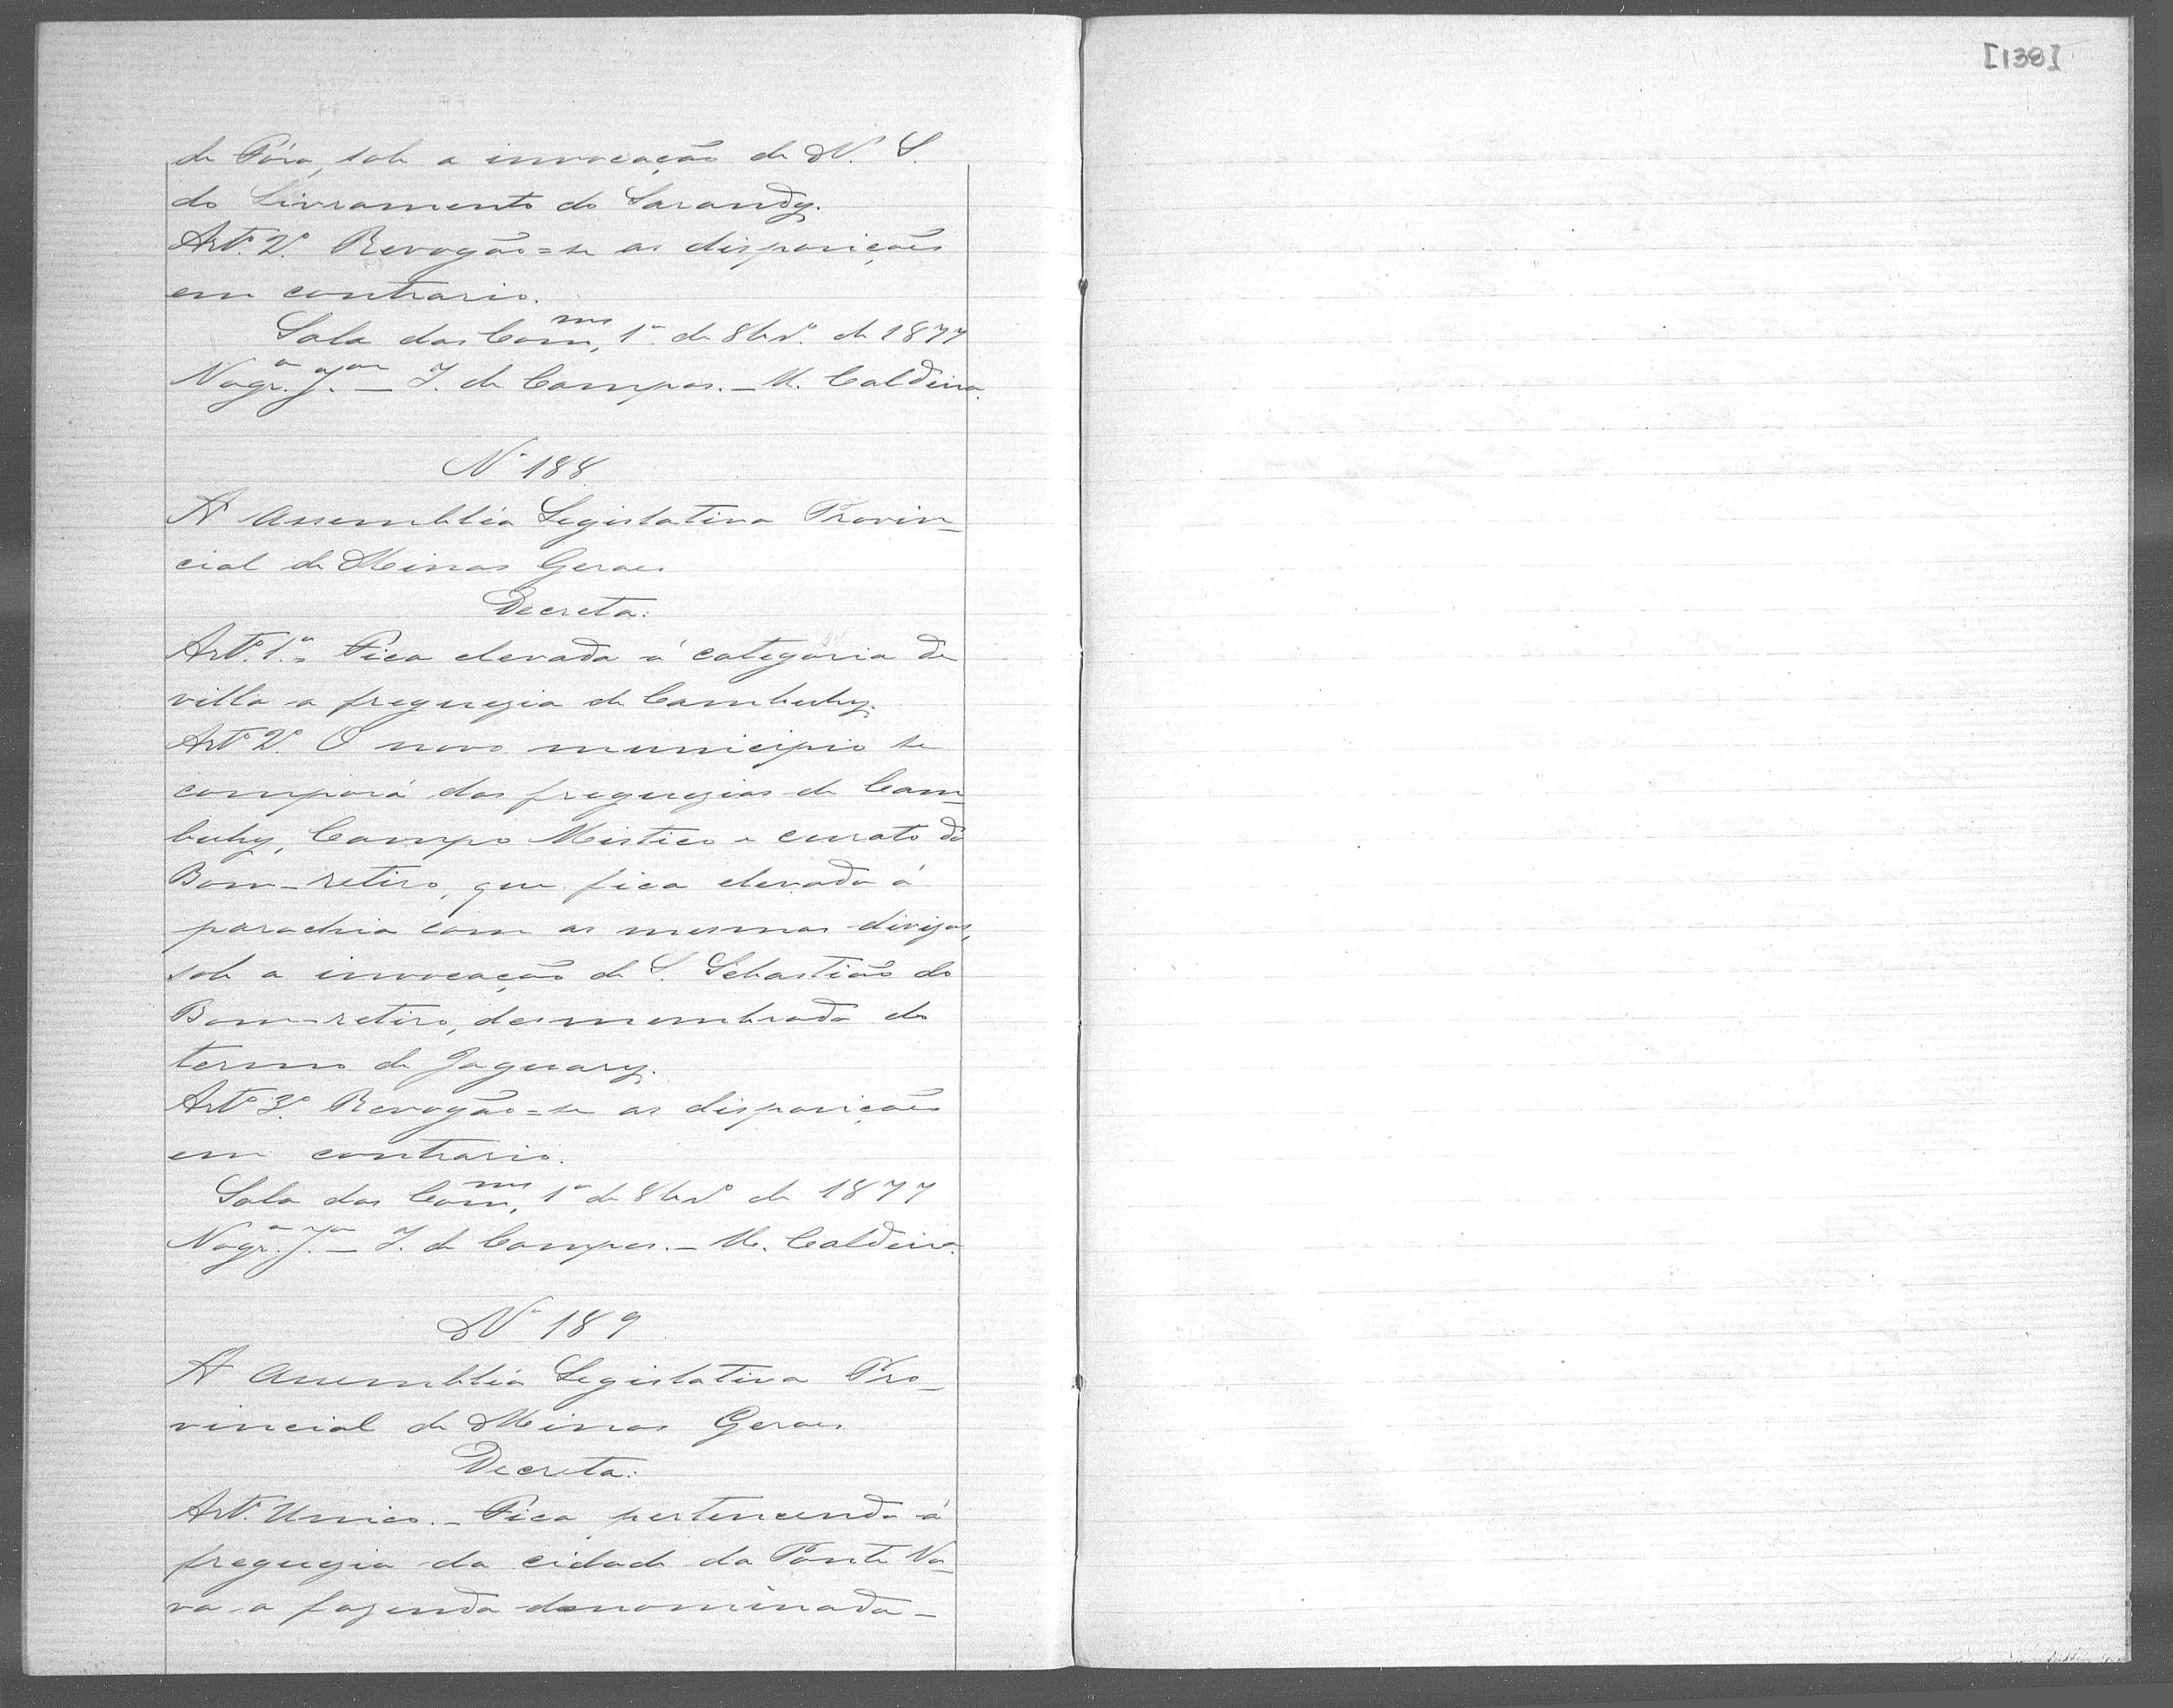 de Fóra, sob a invocação de N. S.
do Livramento do Sarandy.
Artº. 2º. Revogão=se as disposições
em contrario.
Sala das Comm.nes, 1º de 8br.º de 1877
Nogr.ª J.or — J. de Campos. — M. Caldeira.
Nº 188
A Assembléa Legislativa Provin-
cial de Minas Geraes
Decreta:
Artº. 1º. Fica elevada á categoria de
villa a freguezia de Cambuhy.
Artº 2º. O novo municipio se
comporá das freguezias de Cam-
buhy, Campo Mistico e curato do
Bom-retiro, que fica elevado á
parochia com as mesmas divizas,
sob a invocação de S. Sebastião do
Bom-retiro, desmembrada do
termo de Jaguary.
Artº 3º. Revogão=se as disposições
em contrario.
Sala das Comm.nes, 1º de 8br.º de 1877
Nogr.ª J.or — J. de Campos. — M. Caldeira.
Nº 189
A Assembléa Legislativa Pro-
vincial de Minas Geraes
Decreta:
Artº. Unico. — Fica pertencendo á
freguezia da cidade da Ponte No-
va a fazenda denominada —
[138]